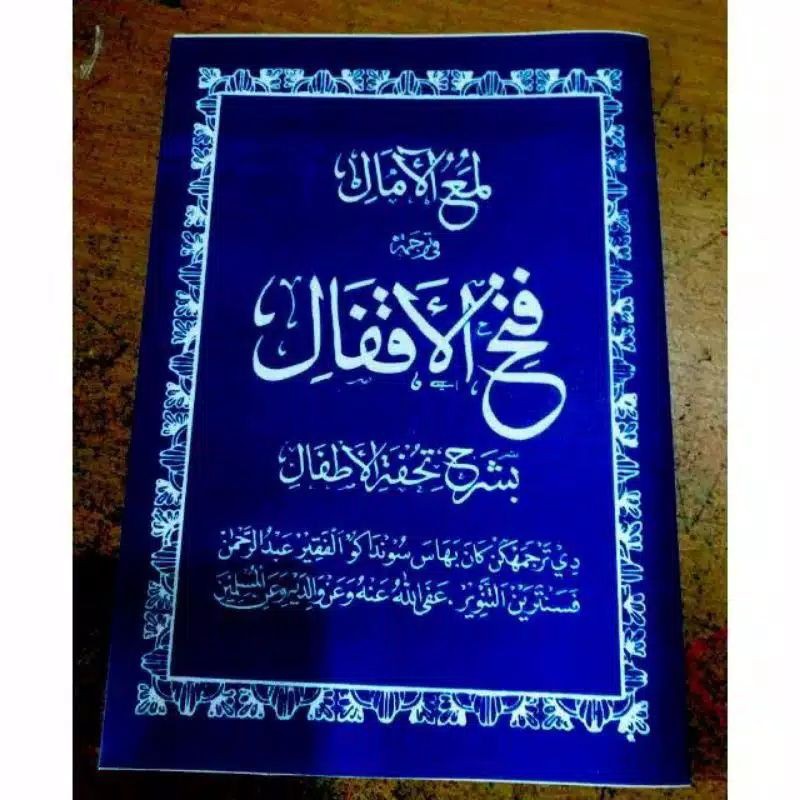 لمع الآمال
في ترجمة
فتح الأقفال
بشرح تحفة الأطفال
دي ترجمهكن كان بهاس سوندا كو الفقير عبد الرحمن
فسنترين التنوير . عفى الله عنه وعن والديه وعن المسلمين